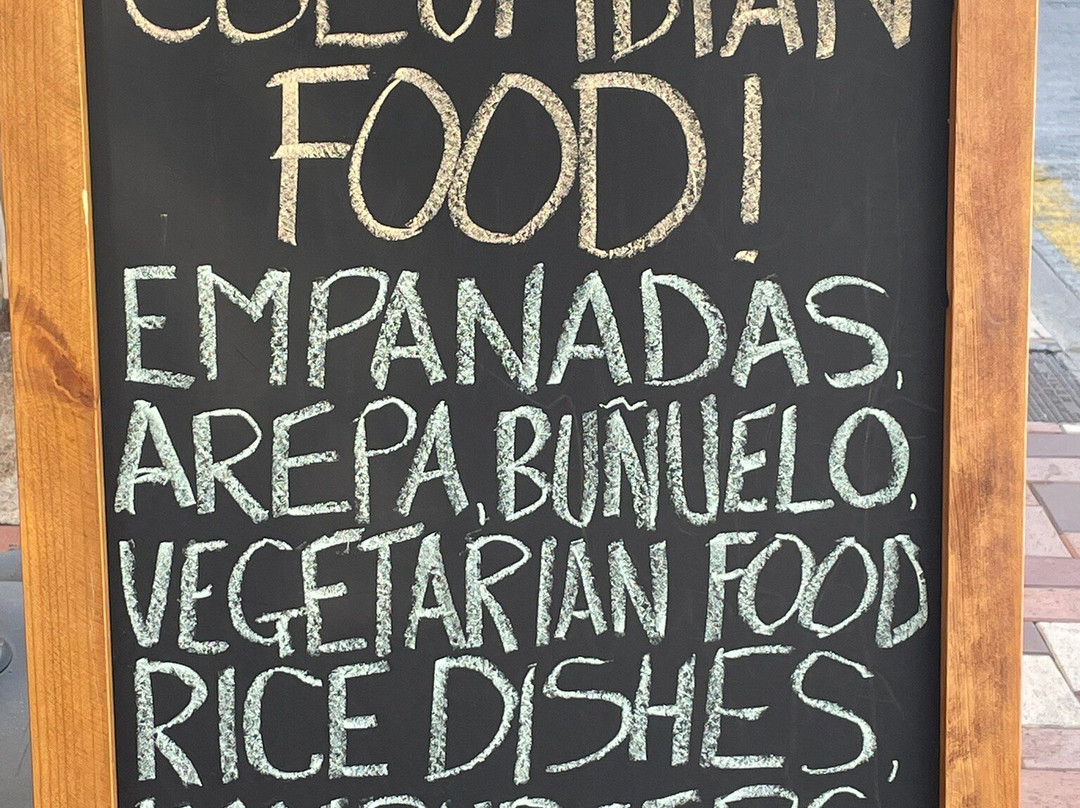 FOOD!
EMPANADAS,
AREPA, BUÑUELO,
VEGETARIAN FOOD
RICE DISHES,
HAMBURGERS